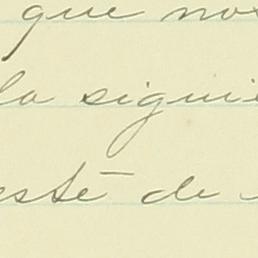 que nos
la siguie
esté de